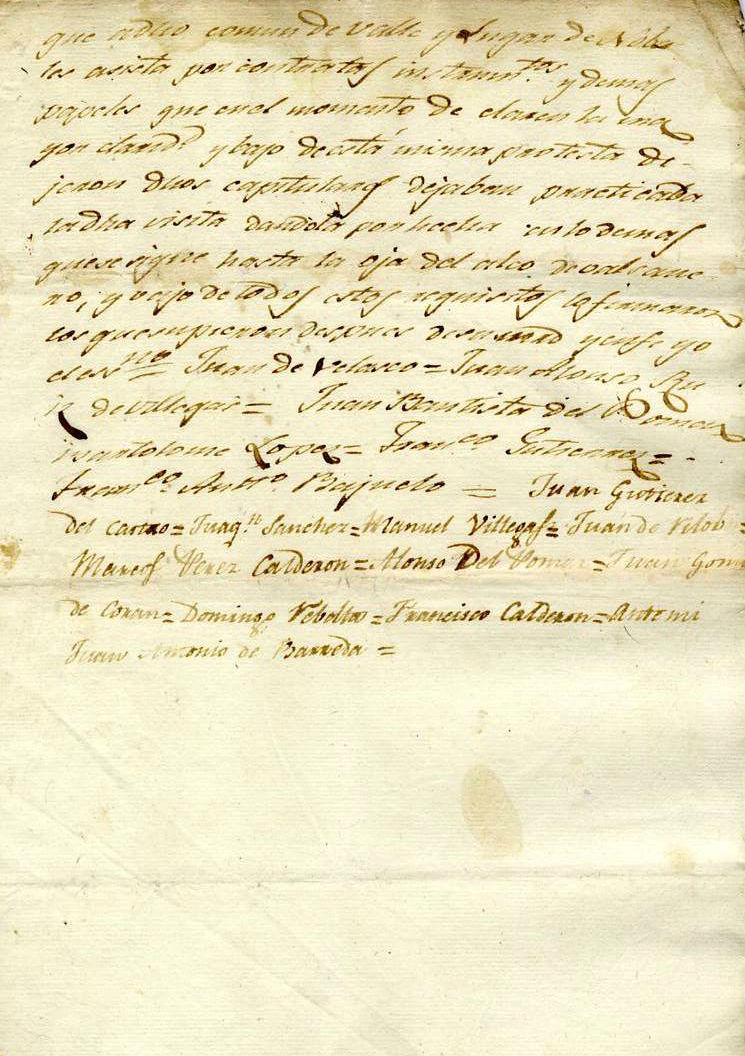 que a dho comun de valle y Lugar de
les asista por contratas instrum.tos y demas
papeles que en el momento de claren la ma
yor claridd y bajo de esta misma protesta di-
jeron dhos capitulares dejaban practicada
la dha visita dandola por hecha en lo demas
que se sigue hasta la oja del alco de
ro, y vajo de todos estos requisitos la firmaron
los que supieron despues de su md y en fe yo
el essno = Juan de Velasco = Juan Alonso Ru
iz de Villegas = Juan Bautista del
Bartolome Lopez = Fran.co Gutierrez = -
Fran.co Antt.o Bajuelo = Juan Gutierrez
del Castro = Juaq.n Sanchez = Manuel Villegas = Juan de
Marcos Perez Calderon = Alonso Del = Juan Gom
de Coran = Domingo = Francisco Calderon = Ante mi
Juan Antonio de Barreda =